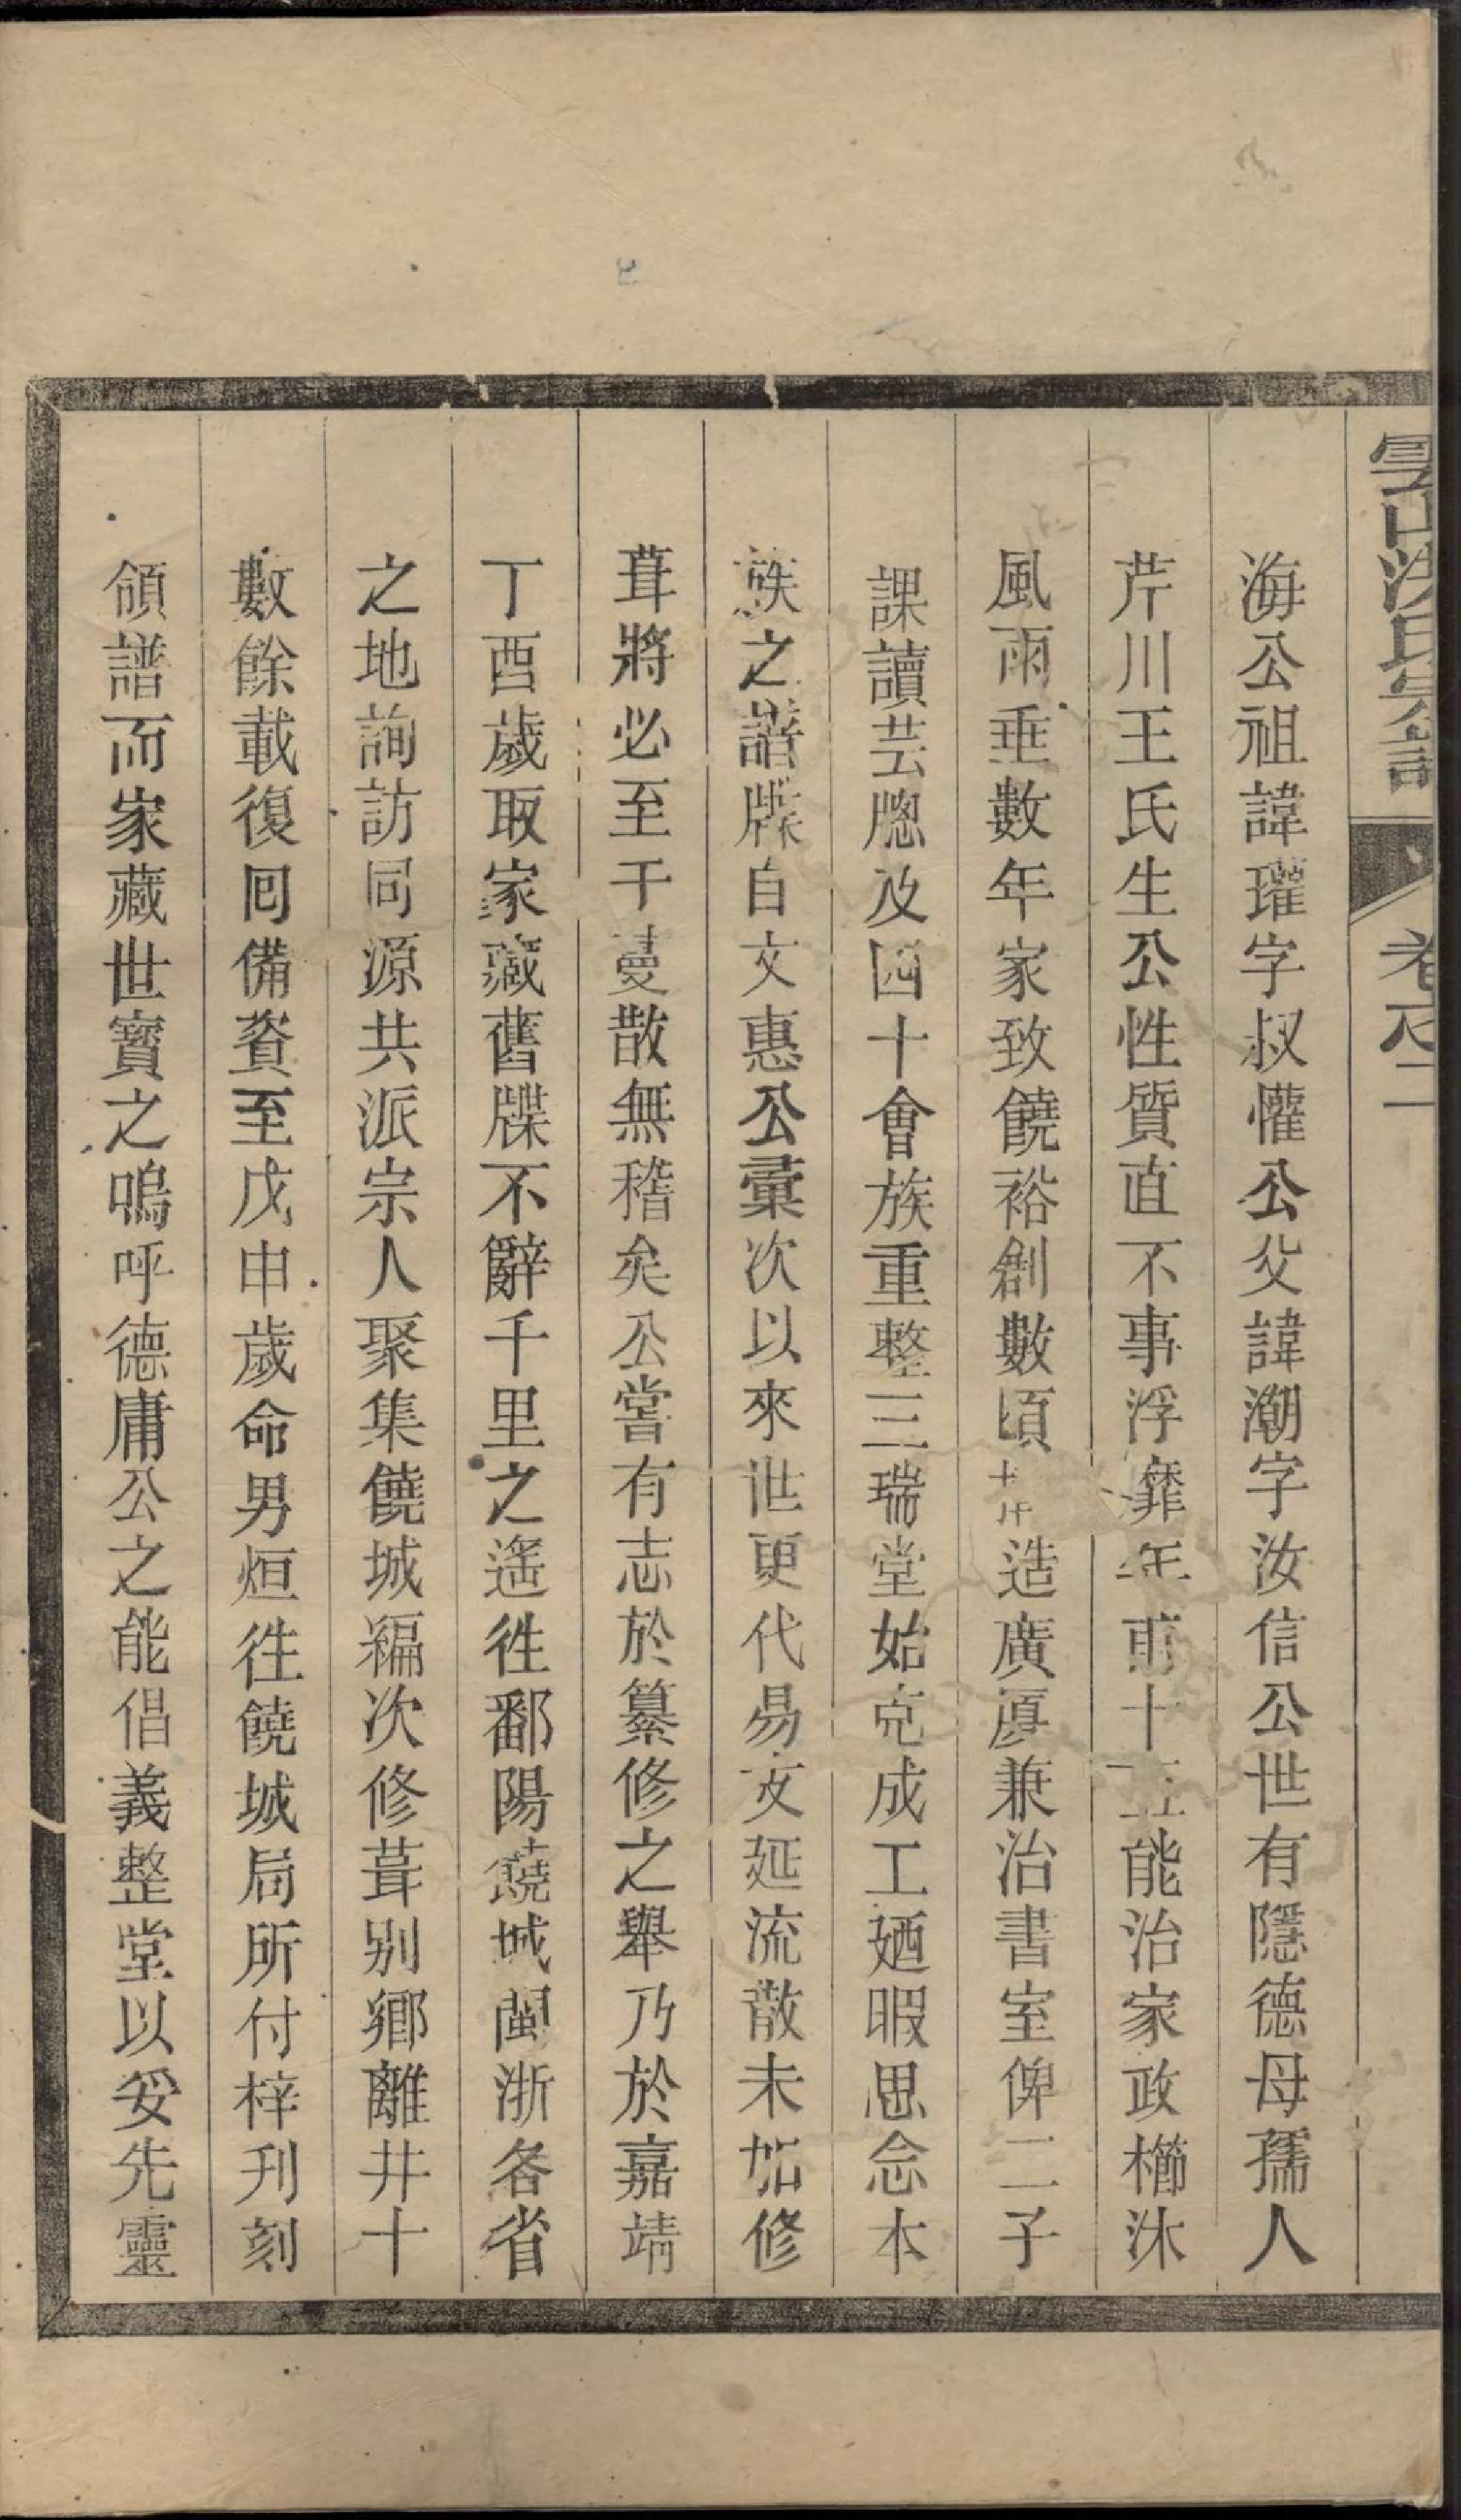 雲山洪氏宗譜 卷之二
海公祖諱瓘字叔懽公父諱潮字汝信公世有隱德母孺人
芹川王氏生公性質直不事浮靡年甫十五能治家政櫛沐
風雨垂數年家致饒裕創數頃造廣厦兼治書室俾二子
課讀芸牕及四十會族重整三瑞堂始克成工廼暇思念本
族之譜牒自文惠公彙次以來世更代易支延流散未加修
葺將必至于蔓散無稽矣公嘗有志於纂修之舉乃於嘉靖
丁酉歲取家藏舊牒不辭千里之遙徃鄱陽饒城閩浙各省
之地詢訪同源共派宗人聚集饒城編次修葺别鄉離井十
數餘載復囘備資至戊申歲命男烜徃饒城局所付梓刋刻
領譜而家藏世寳之嗚呼德庸公之能倡義整堂以妥先靈